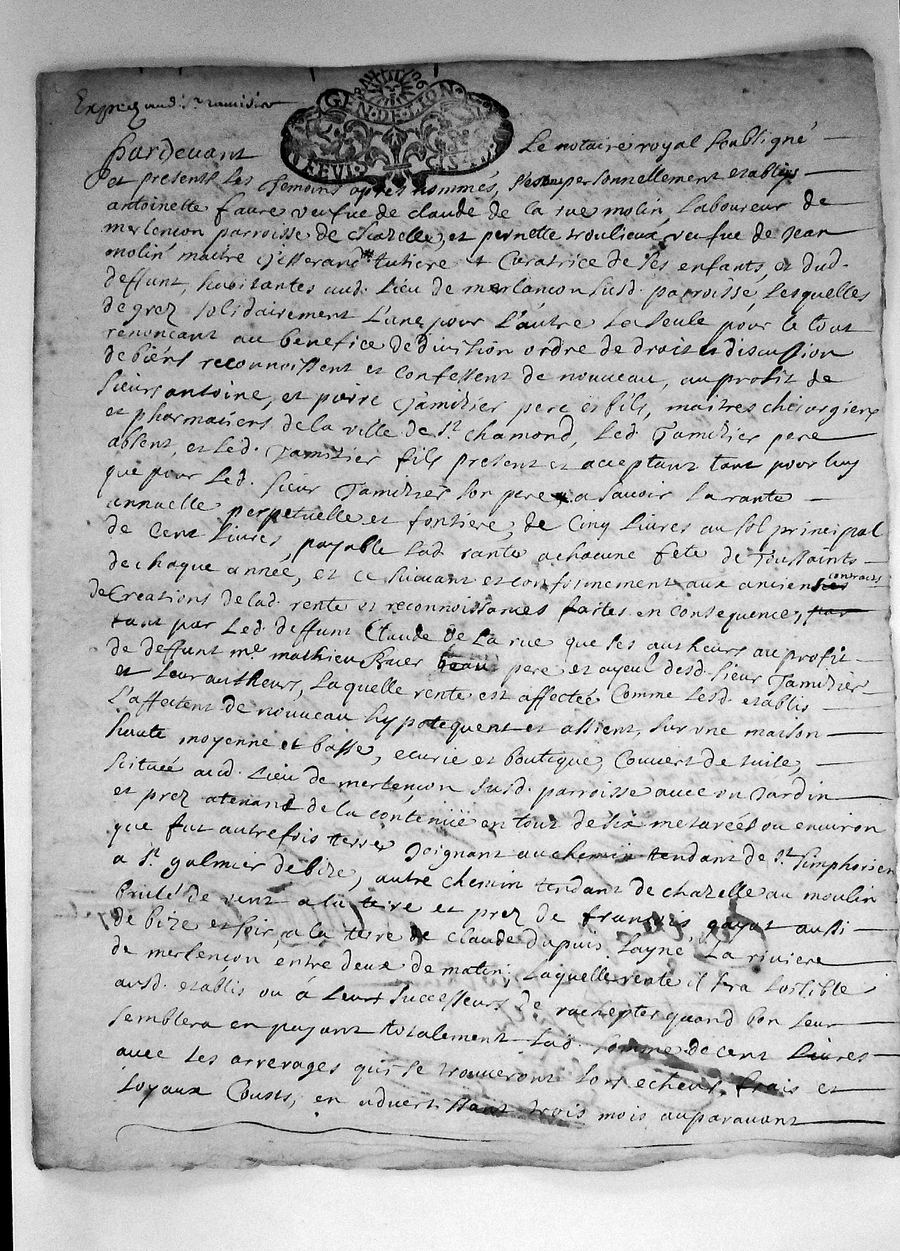 GEN. DE. LION.
pardevant Le notaire royal soubsigné
et presents les Temoins apres nommés, personnellement etablys
antoinette faure veufue de claude de la rue molin, Laboureur de
merlencon parroisse de chazelle, et pernette troulieux veufue de Jean
molin maitre Tisserand tutiere et Curatrice de ses enfants, et dud.
deffunt, habitantes aud. Lieu de merlancon susd. parroisse, Lesquelles
de grez solidairement L'une pour L'autre La seule pour le tout
renoncant au benefice de division ordre de droit et discussion
de biens reconnoissent et confessent de nouveau, au profit de
sieurs antoine, et pierre Tamizier pere et fils, maitres chirurgiens
et pharmatiens de la ville de st chamond, Led. Tamizier pere
absent, et Led. Tamizier fils present et acceptant tant pour luy
que pour Led. sieur Tamizier son pere a savoir La rante
annuelle perpetuelle et fontiere, de Cinq Livres au sol principal
de Cent Livres, payable Lad. rante a chacune fete de Toussaints
de chaque année, et ce suivant et conformement aux anciens contracts
de Creations de lad. rente et reconnoissances faites en consequence,
tant par Led. deffunt Claude de La rue que ses autheurs au profit
de deffunt me mathieu pere et ayeul desd. sieur Tamizier
et Leur autheurs, Laquelle rente est affectée Comme Lesd. etablis
L'affectent de nouveau hypotequent et assient, sur une maison
haute moyenne et basse, ecurie et boutique, Couvert de tuile,
scituée aud. Lieu de merlencon susd. parroisse avec un Jardin
et prez atenant de la contenüe en tout de six meterées ou environ
que fut autrefois terre, Joignant au chemin tendant de st simphorien
a st galmier de bize, autre chemin tendant de chazelle au moulin
brulé de vent a la terre et prez de francois gayot aussi
de bize et soir, a la terre de claude dupuis Layné La riviere
de merlencon entre deux de matin, Laquelle rente il sera loisible
ausd. etablis ou à Leurs successeurs de rachepter quand bon leur
semblera en payant totalement Lad. somme de cent Livres
avec les arrerages qui se trouveront lors echeus, frais et
Loyaux Cousts, en advertissant trois mois auparavant